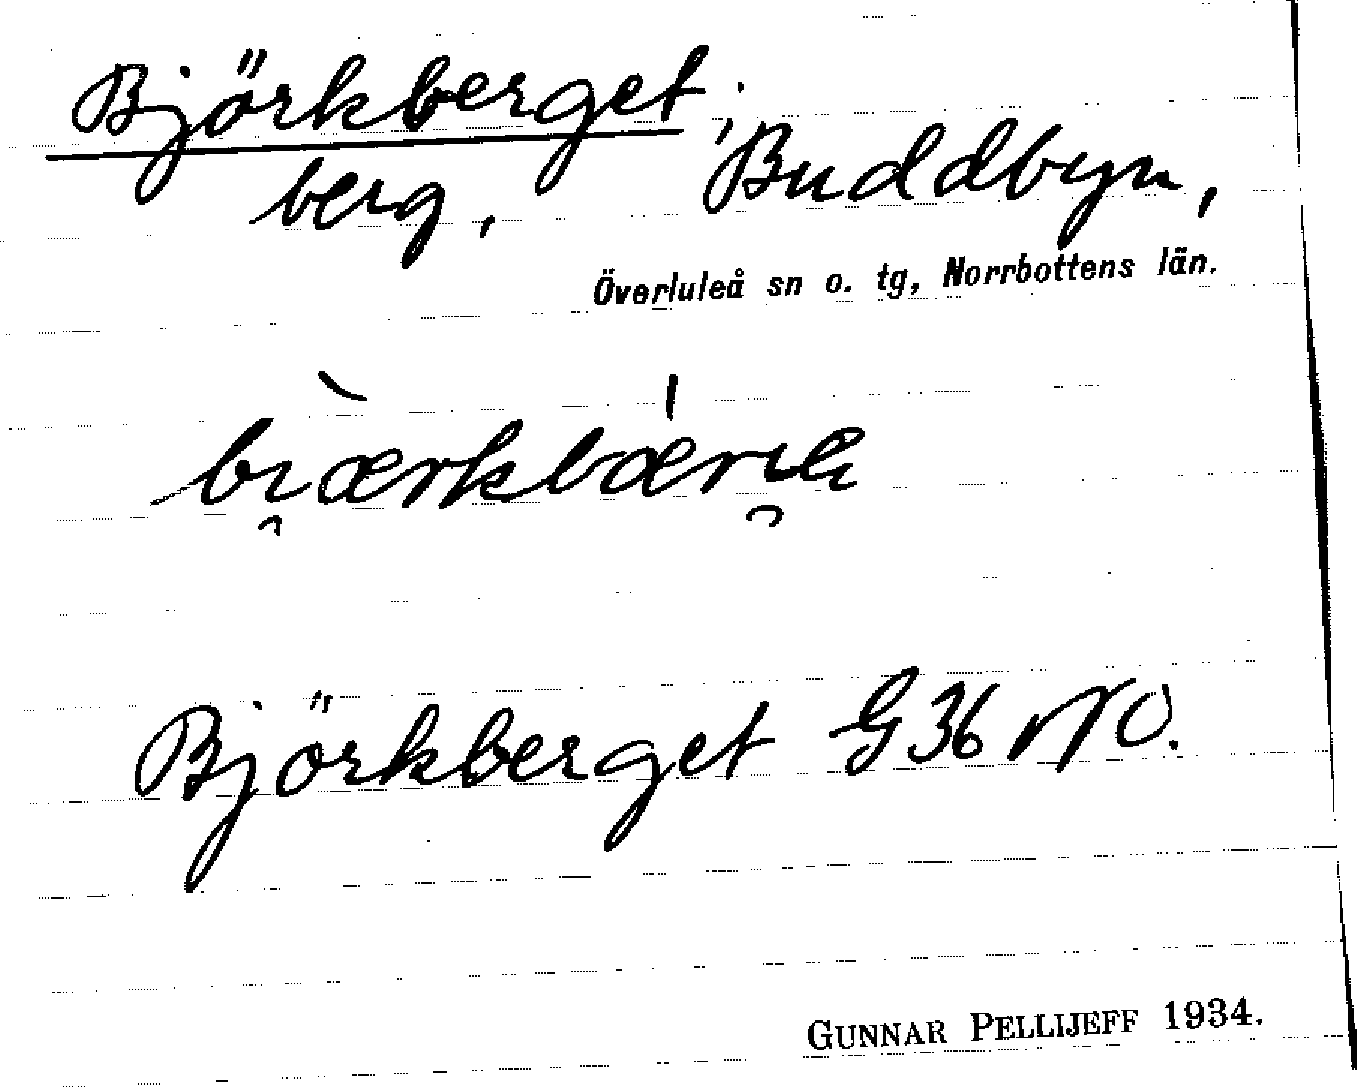 Björkberget,
berg, Buddbyn,
Överluleå sn o. tg, Norrbottens län.
Björkberget G36 NO.
GUNNAR PELLIJEFF 1934.